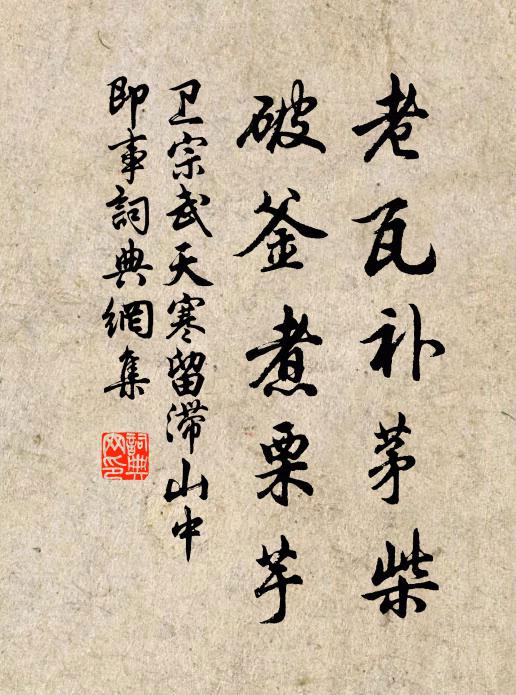 老瓦补茅柴
破釜煮栗芋
卫宗武天寒留滞山中
即事词典網集
詞典網印